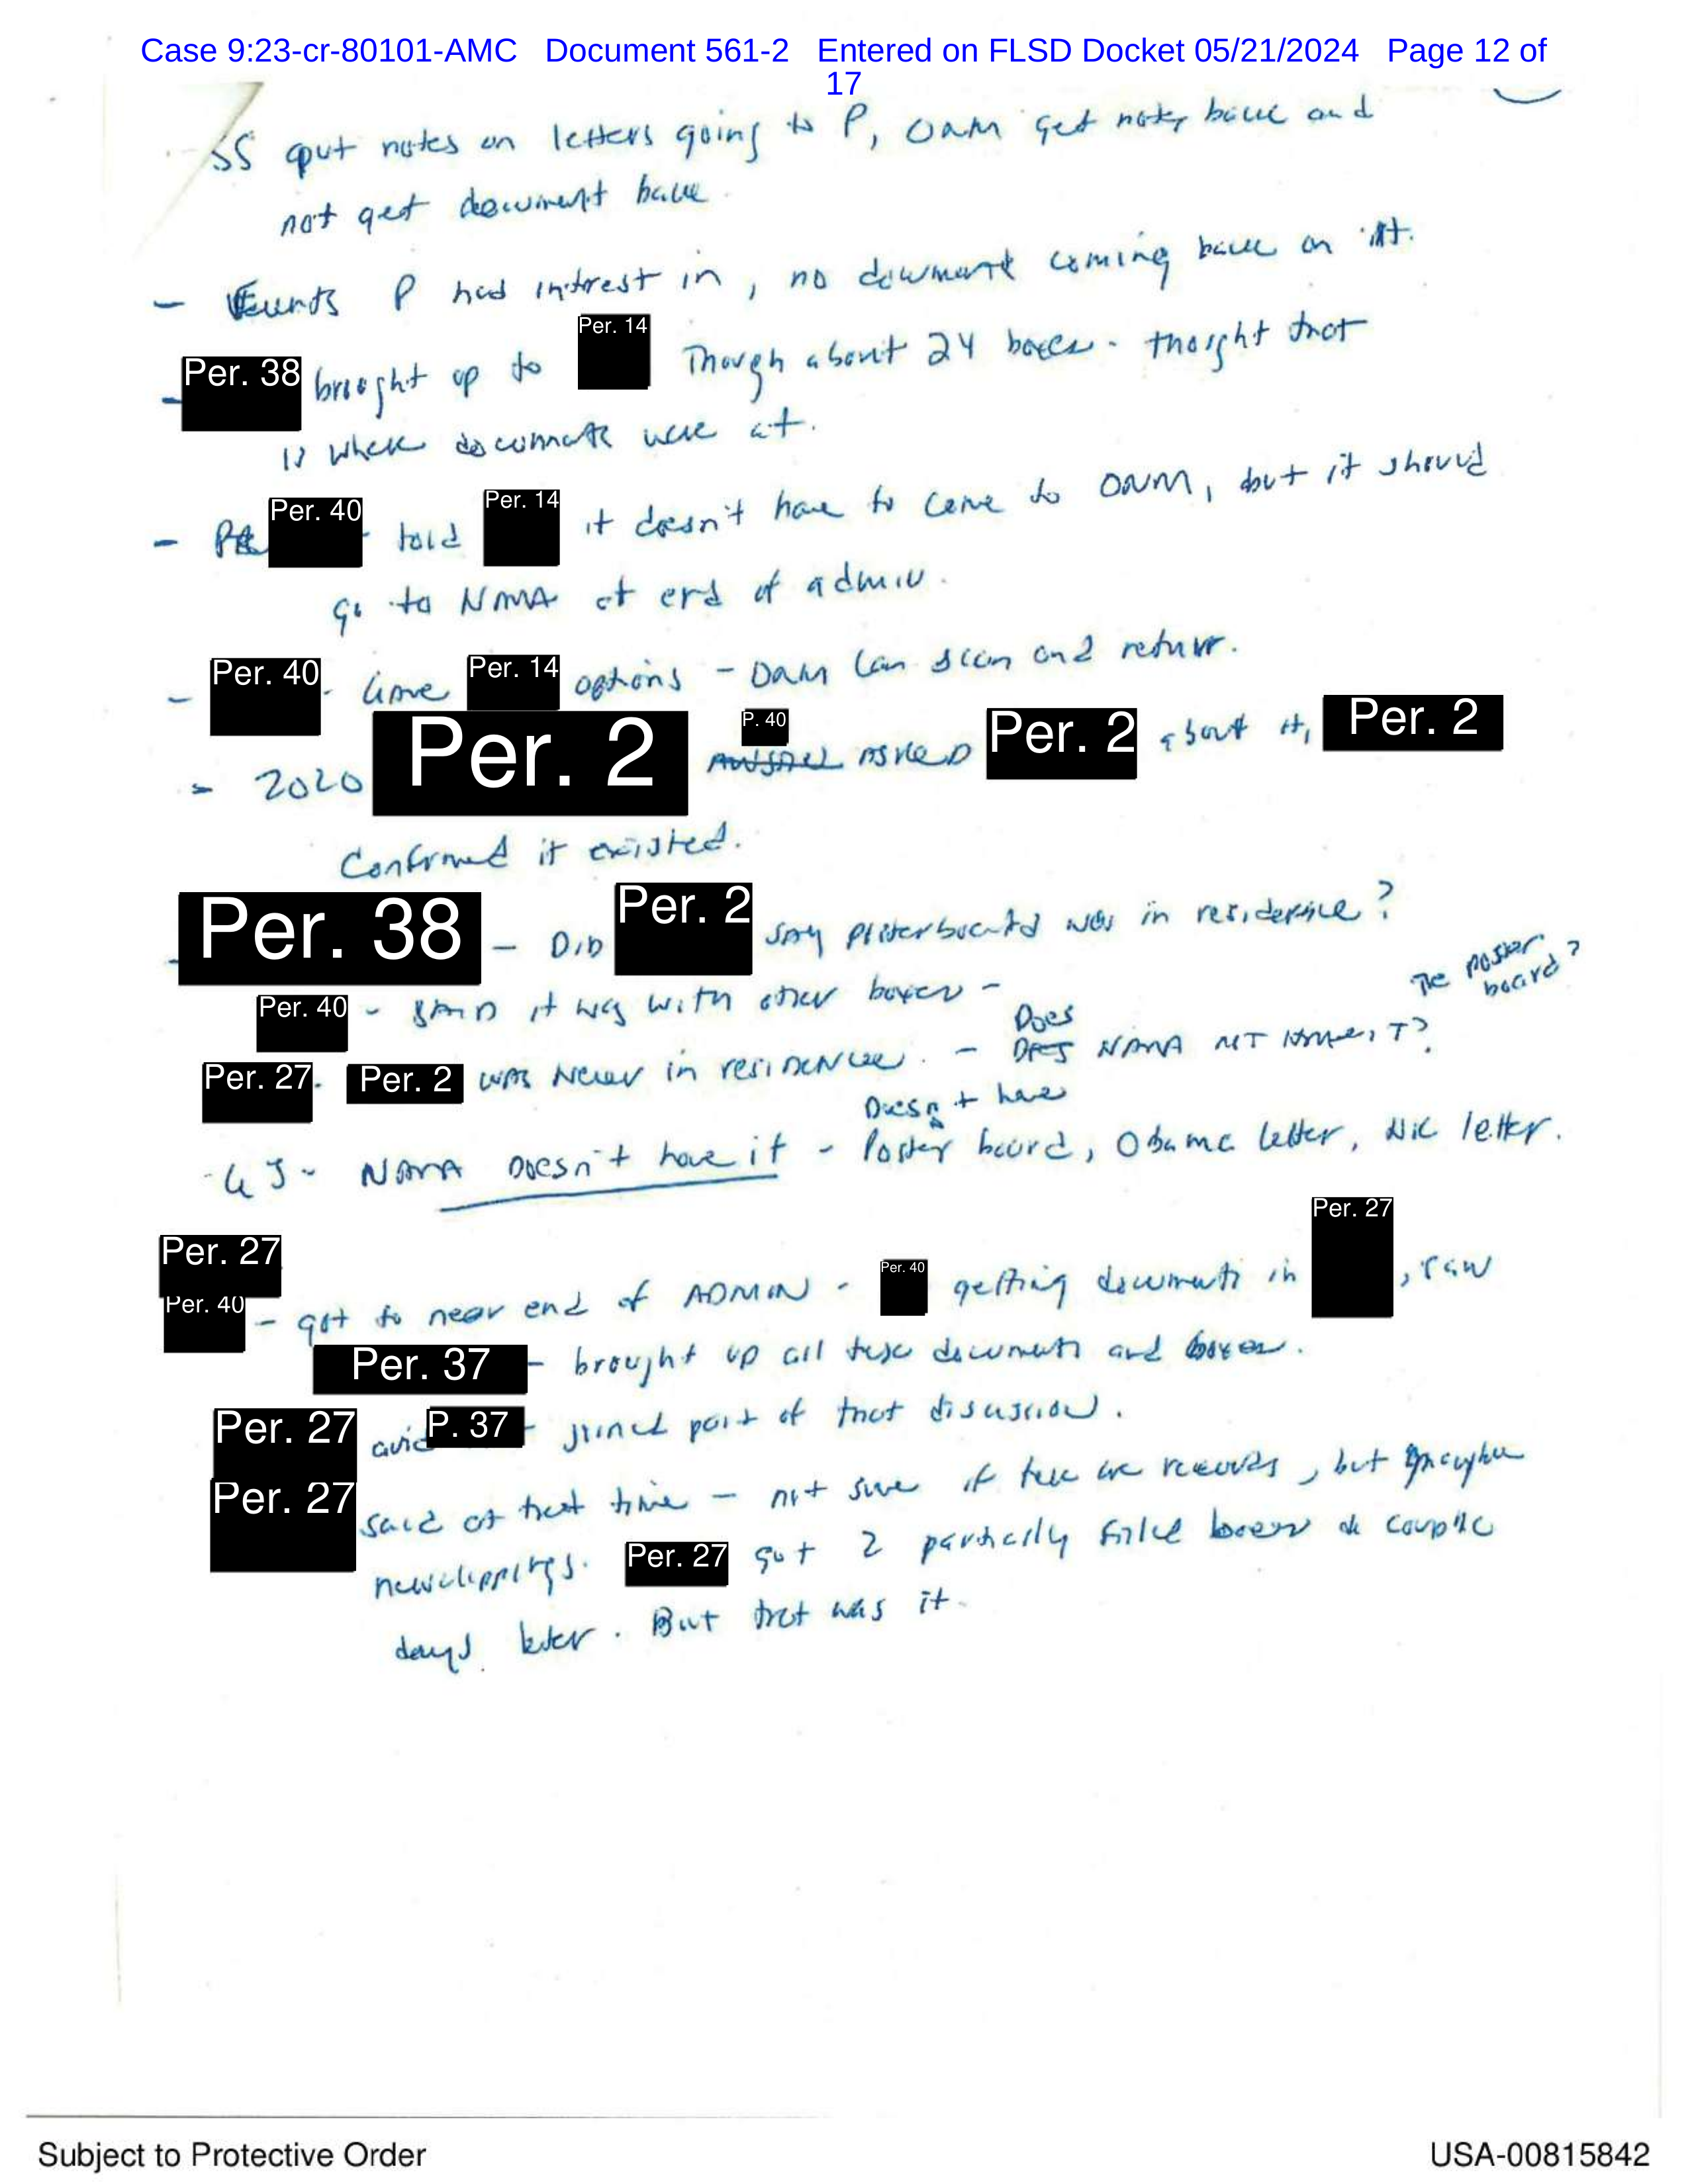 Case 9:23-cr-80101-AMC Document 561-2 Entered on FLSD Docket 05/21/2024 Page 12 of
17
SS put notes on letters going to P, ORM get notes back and
not get document back
- Events P had interest in, no document coming back on it.
- Per. 38 brought up to Per. 14 Though about 24 boxes. thought that
is where documents were at.
- Per. 40 told Per. 14 it doesn't have to come to ORM, but it should
go to NARA at end of admin.
- Per. 40 - Gave Per. 14 options - ORM can scan and return.
P. 40
- 2020 Per. 2 asked Per. 2 about it, Per. 2
Confirmed it existed.
- Per. 38 - Did Per. 2 say posterboard was in residence?
The poster
board?
Per. 40 - said it was with other boxes -
Does
Per. 27. Per. 2 was never in residence. - NARA not have it?
Doesn't have
- GS - NARA Doesn't have it - Poster board, Obama letter, letter.
Per. 27
Per. 27
Per. 40 - got to near end of ADMIN - Per. 40 getting documents in , saw
Per. 37 - brought up all these documents and boxes.
Per. 27 and P. 37 - joined part of that discussion.
Per. 27 said at that time - not sure if these are records, but maybe
newsclippings. Per. 27 got 2 partially filled boxes a couple
days later. But that was it.
Subject to Protective Order
USA-00815842